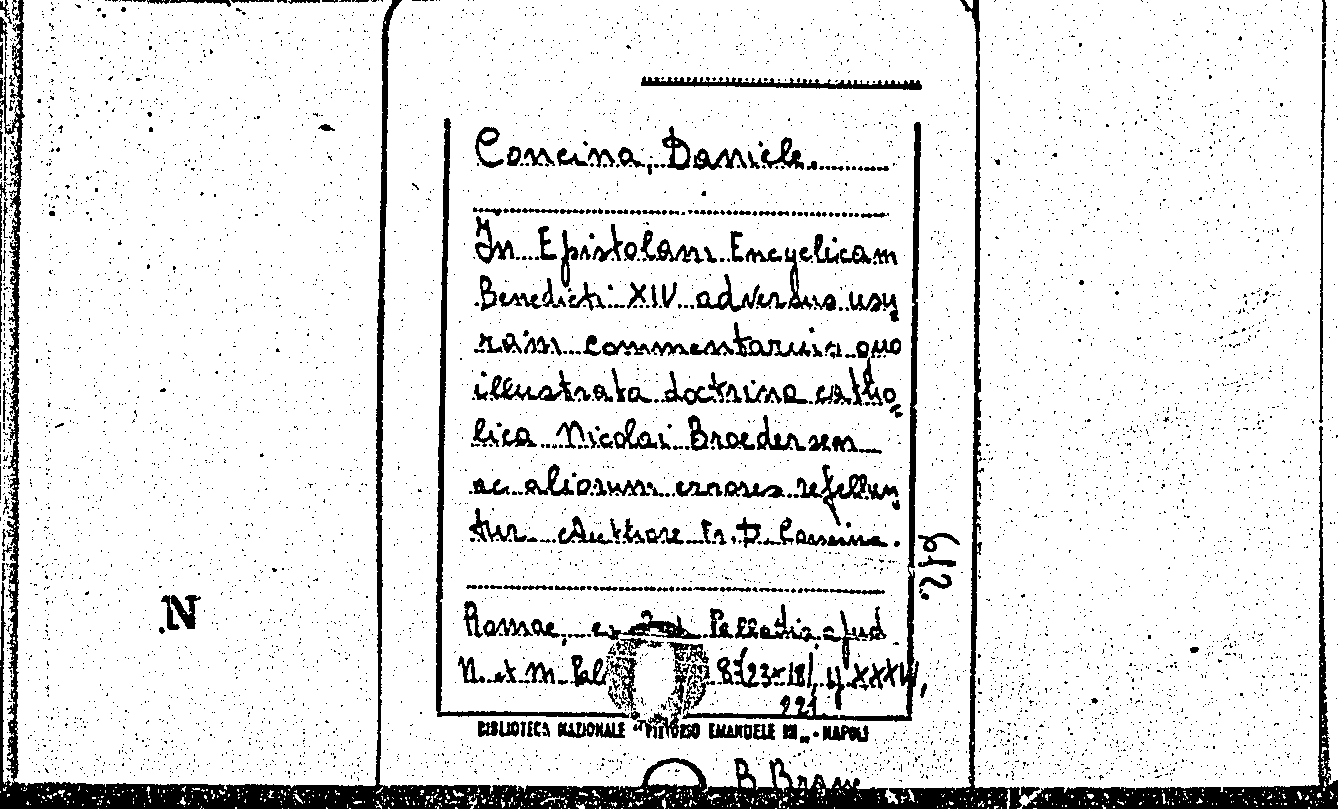 Concina, Daniele.
In Epistolam Encyclicam
Benedicti XIV adversus usu=
ram commentarius quo
illustrata doctrina catho=
lica Nicolai Broedersem
ac aliorum errores refellun=
tur. Authore Fr. D. Concina.
612.
N.
Romae, ex Pelladis apud
N. et M. Pal 8º(23×18) XXXIV,
221.
BIBLIOTECA NAZIONALE "VITTORIO EMANUELE III„ - NAPOLI
B. Branc